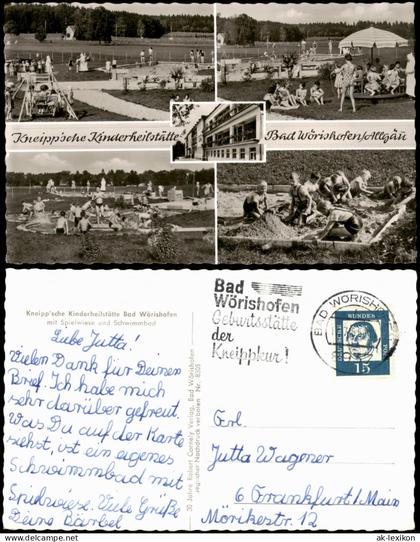 Kneipp'sche Kinderheilstätte
Bad Wörishofen/Allgäu
Kneipp'sche Kinderheilstätte Bad Wörishofen
mit Spielwiese und Schwimmbad
Liebe Jutta!
Vielen Dank für Deinen
Brief. Ich habe mich
sehr darüber gefreut.
Was Du auf der Karte
siehst, ist ein eigenes
Schwimmbad mit
Spielwiese. Viele Grüße
Deine Bärbel
30 Jahre Robert Cornely Verlag, Bad Wörishofen
Nachdruck verboten Nr. 8305
Bad
Wörishofen
Geburtsstätte
der
Kneippkur!
BAD WÖRISH
DEUTSCHE BUNDESPOST
15
Frl.
Jutta Wagener
6 Frankfurt/Main
Mörikestr. 12
www.ak-lexikon.de
ak-lexikon.de